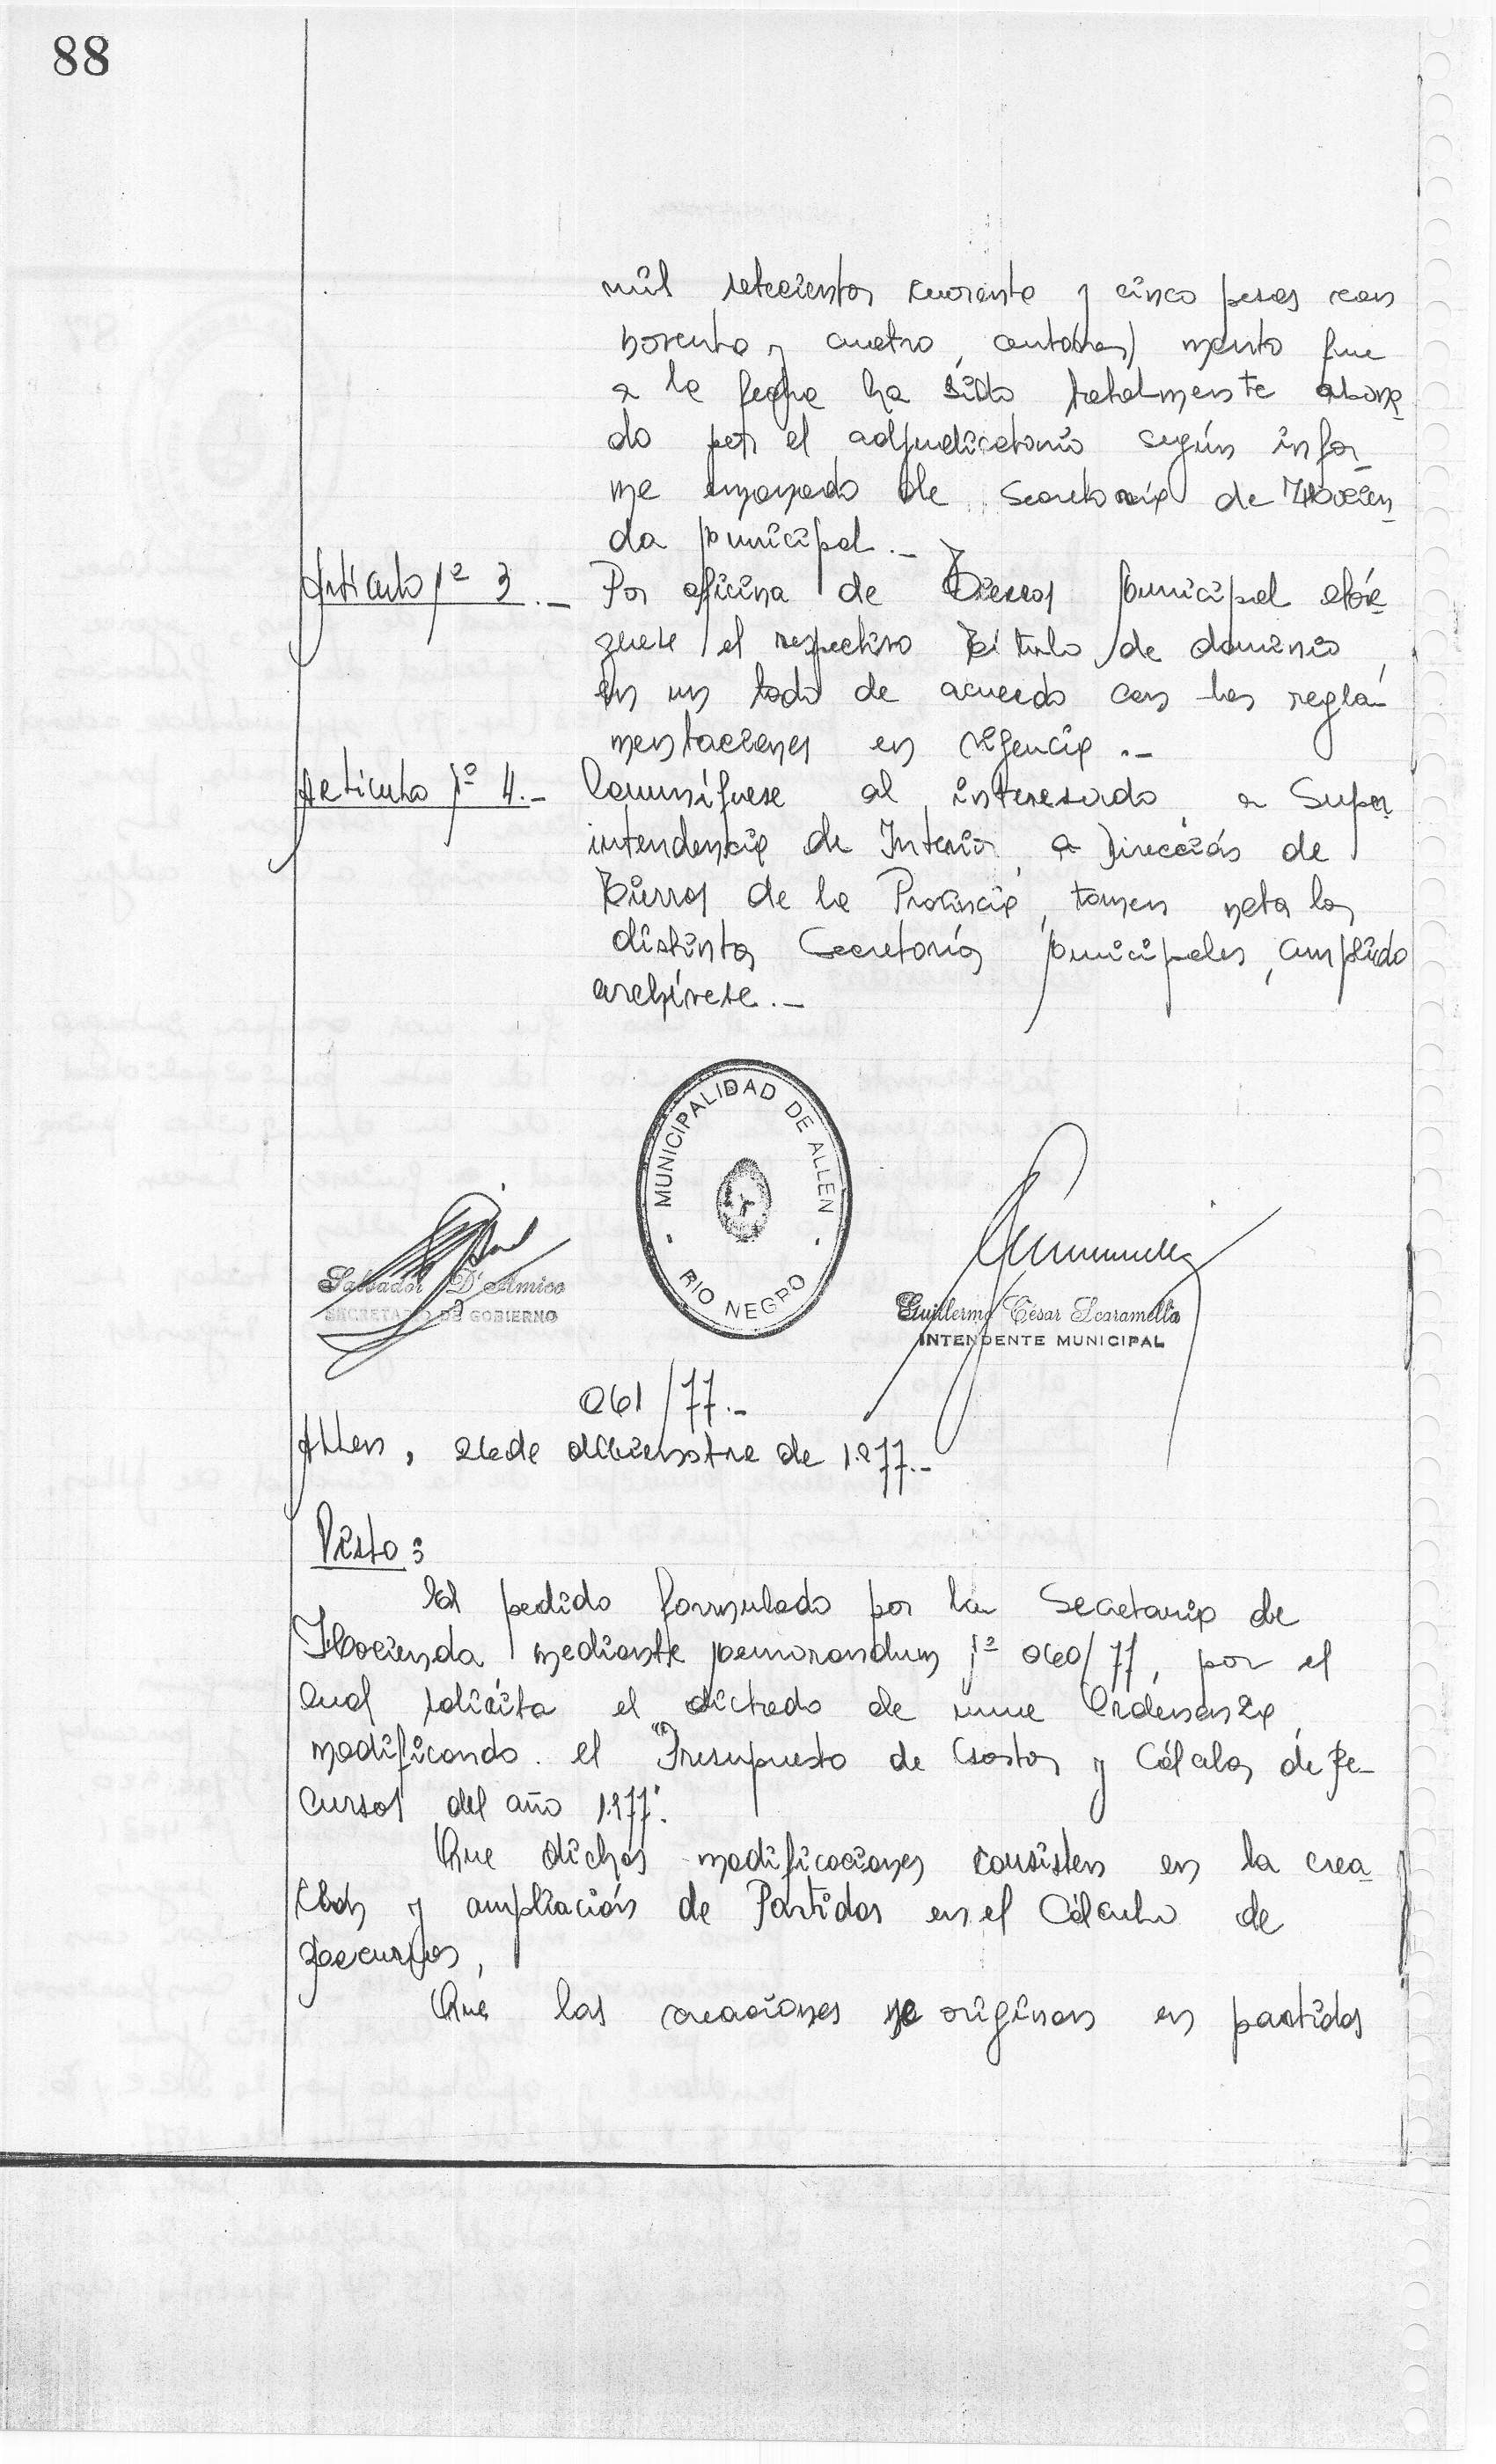 88
mil setecientos cuarenta y cinco pesos con
noventa y cuatro centavos) monto que
a la fecha ha sido totalmente abona
do por el adjudicatario según infor
me emanado de Secretaría de Hacien
da Municipal.-
Articulo Nº 3.- Por oficina de Tierras Municipal otór
guese el respectivo título de dominio
en un todo de acuerdo con las regla
mentaciones en vigencia.-
Articulo Nº 4.- Comuníquese al interesado, a Super
intendencia de Interior, a Dirección de
Tierras de la Provincia, tomen nota las
distintas Secretarías Municipales, cumplido
archívese.-
MUNICIPALIDAD DE ALLEN
RIO NEGRO
Salvador D'Amico
SECRETARIO DE GOBIERNO
Guillermo César Scaramella
INTENDENTE MUNICIPAL
061/77.-
Allen, 26 de diciembre de 1.977.-
Visto:
El pedido formulado por la Secretaría de
Hacienda mediante Memorandum Nº 060/77, por el
cual solicita el dictado de una Ordenanza
modificando el "Presupuesto de Gastos y Cálculos de Re-
cursos del año 1.977".
Que dichas modificaciones consisten en la crea
ción y ampliación de Partidas en el Cálculo de
Recursos,
Que las creaciones se originan en partidas